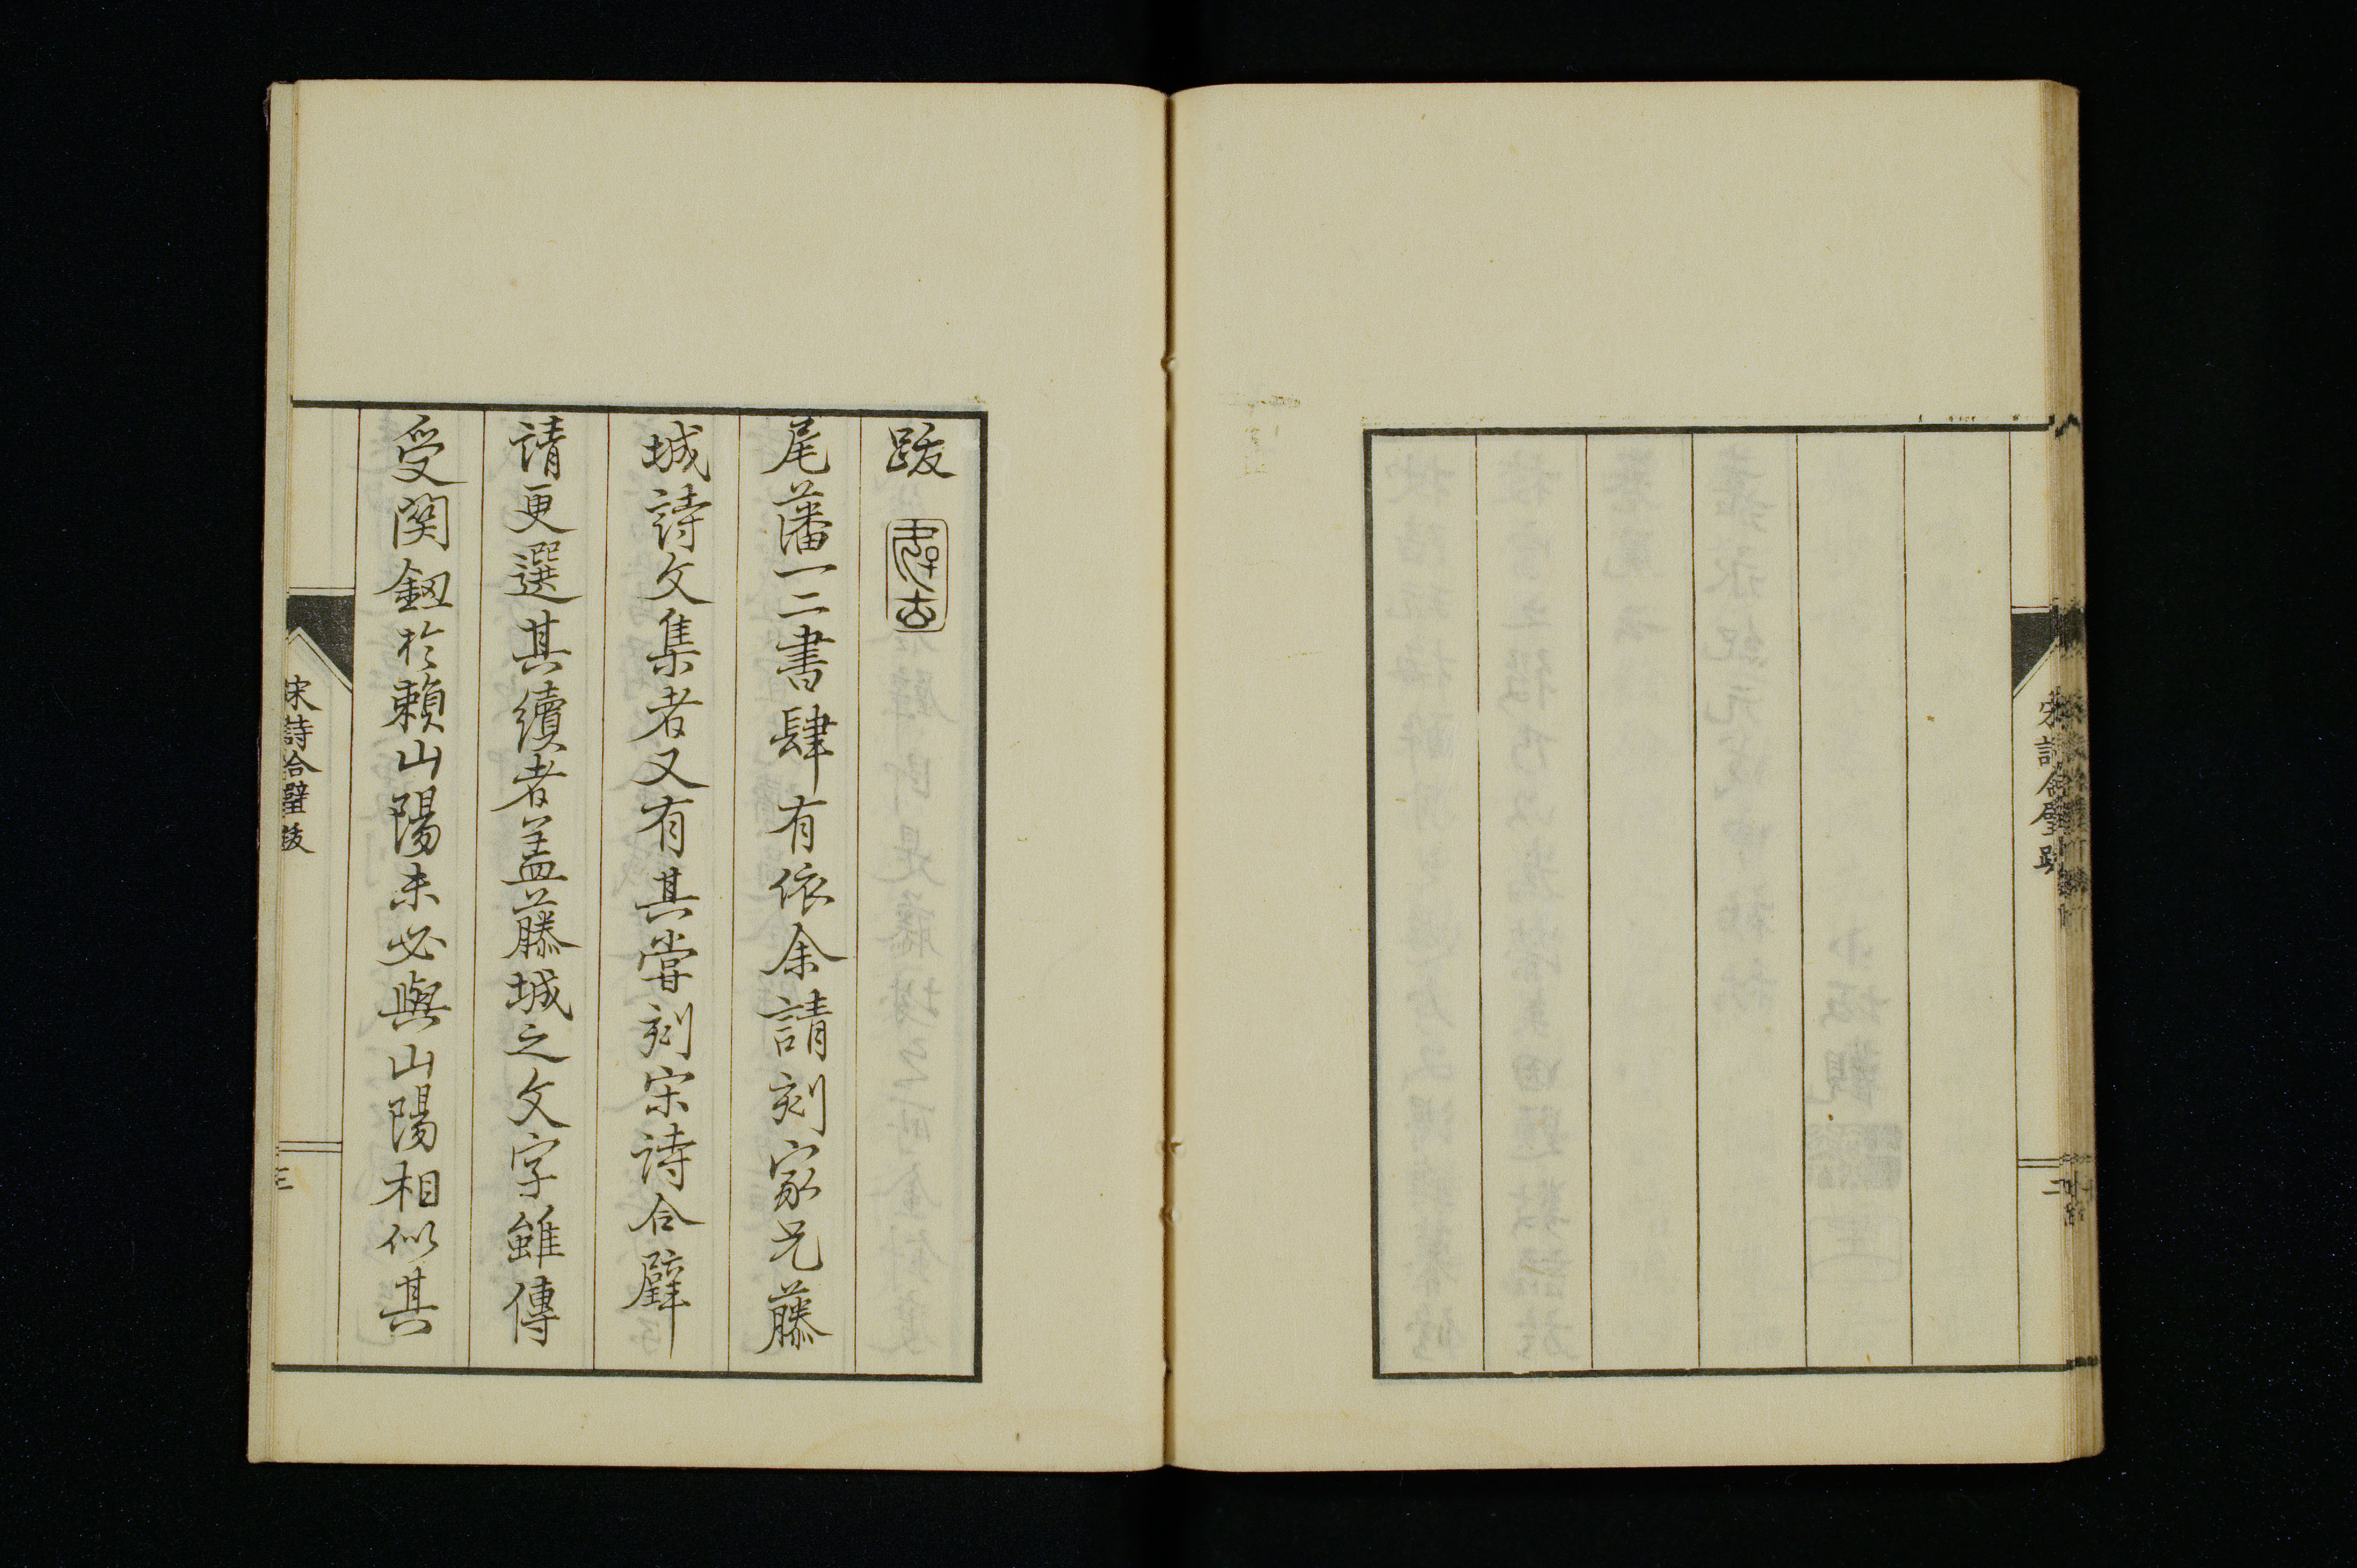 宋詩合璧跋
二
跋
尾藩一二書肆有依余請刻家兄藤
城詩文集者又有其嘗刻宋詩合璧
請更選其續者蓋藤城之文字雖傳
受関鈕於賴山陽未必與山陽相似其
宋詩合璧跋
三